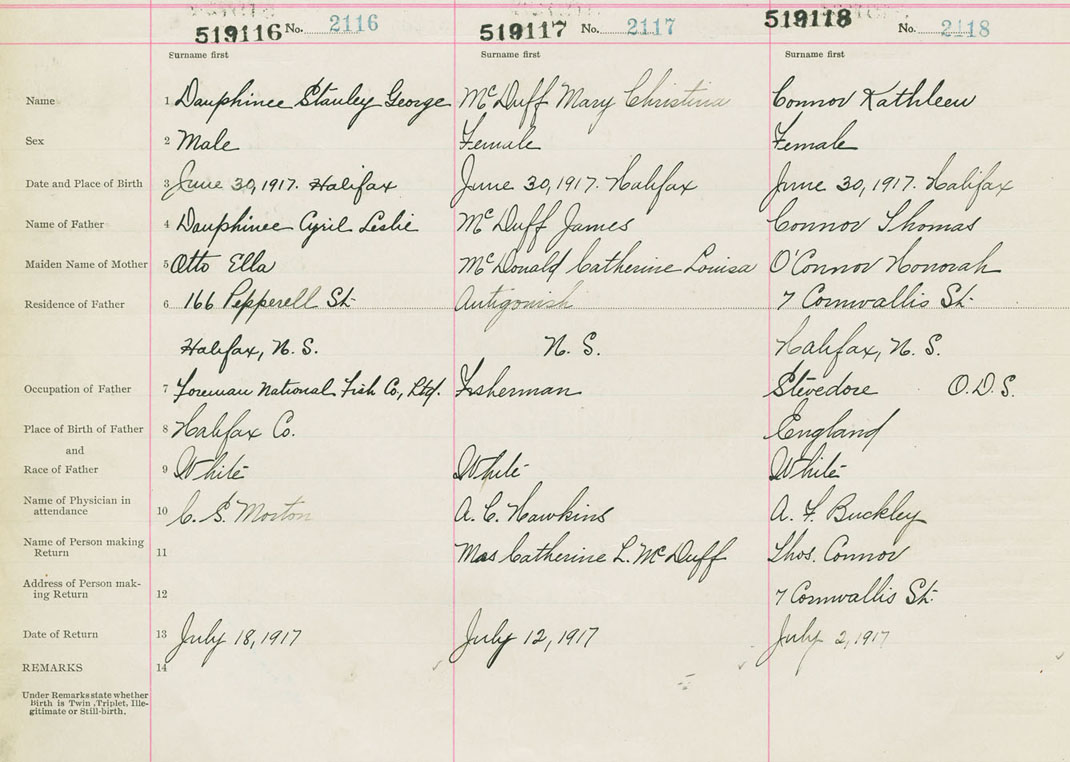 519116 No. 2116 519117 No. 2117 519118 No. 2118
Surname first Surname first Surname first
Name 1 Dauphinee Stanley George McDuff Mary Christina Connor Kathleen
Sex 2 Male Female Female
Date and Place of Birth 3 June 30, 1917. Halifax June 30, 1917. Halifax June 30, 1917. Halifax
Name of Father 4 Dauphinee Cyril Leslie McDuff James Connor Thomas
Maiden Name of Mother 5 Otto Ella McDonald Catherine Louisa O'Connor Honorah
Residence of Father 6 166 Pepperell St. Antigonish 7 Cornwallis St.
Halifax, N.S. N.S. Halifax, N.S.
Occupation of Father 7 Foreman National Fish Co, Ltd. Fisherman Stevedore O.D.S.
Place of Birth of Father 8 Halifax Co. England
and
Race of Father 9 White White White
Name of Physician in
attendance 10 C. S. Morton A. C. Hawkins A. F. Buckley
Name of Person making
Return 11 Mrs Catherine L. McDuff Thos. Connor
Address of Person mak-
ing Return 12 7 Cornwallis St.
Date of Return 13 July 18, 1917 July 12, 1917 July 2, 1917
REMARKS 14
Under Remarks state whether
Birth is Twin, Triplet, Ille-
gitimate or Still-birth.